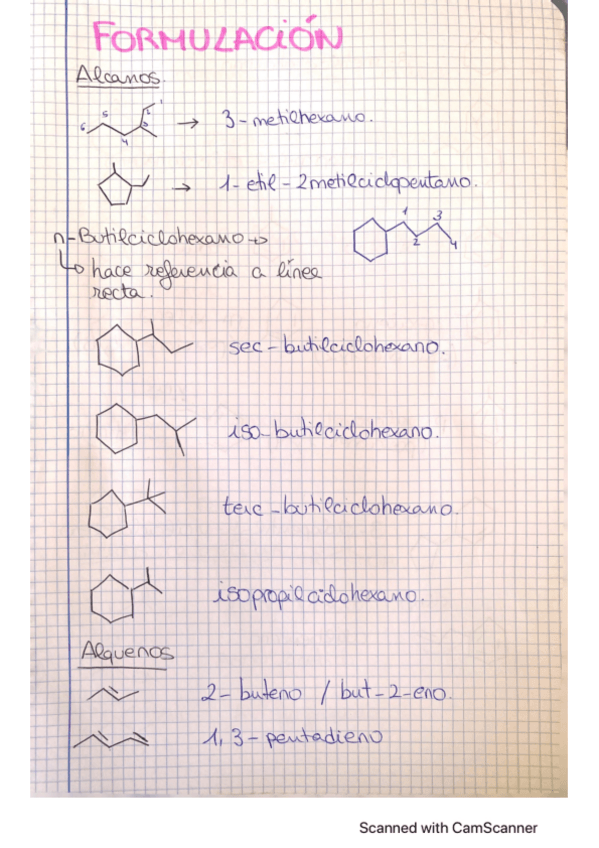 FORMULACIÓN
Alcanos.
6 5 4 3 2 1 → 3-metilhexano.
→ 1-etil-2metilciclopentano.
n-Butilciclohexano → 1 2 3 4
↳ hace referencia a línea
recta.
sec-butilciclohexano.
iso-butilciclohexano.
terc-butilciclohexano.
isopropilciclohexano.
Alquenos
2-buteno / but-2-eno.
1,3-pentadieno
Scanned with CamScanner